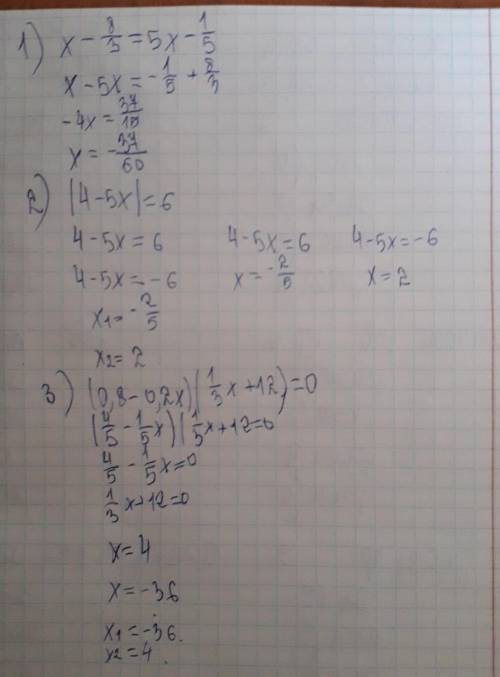 1) x - 8/3 = 5x - 1/5
x - 5x = -1/5 + 8/3
-4x = 37/15
x = -37/60
2) |4-5x|=6
4-5x=6 4-5x=6 4-5x=-6
4-5x=-6 x=-2/5 x=2
x1=-2/5
x2=2
3) (0,8-0,2x)(1/3x+12)=0
(4/5-1/5x)(1/3x+12=0
4/5-1/5x=0
1/3x+12=0
x=4
x=-36
x1=-36.
x2=4.